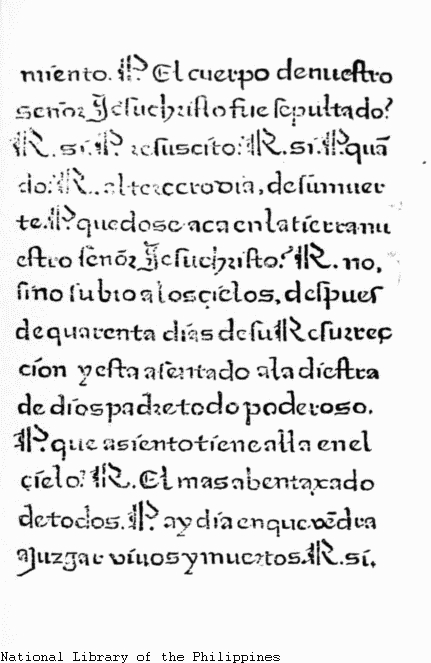 miento. P. El cuerpo de nuestro
señor Jesuchristo fue sepultado?
R. si. P. resuscito? R. si. P. quã
do? R. al tercero dia, de su muer
te. P. quedose aca en la tierra nu
estro señor Jesuchristo? R. no,
sino subio a los çielos, despues
de quarenta dias de su Resurreç
cion y esta asentado ala diestra
de dios padre todo poderoso.
P. que asiento tiene alla en el
çielo? R. El mas abentaxado
de todos. P. ay dia en que vẽdra
a juzgar viuos y muertos. R. si.
National Library of the Philippines